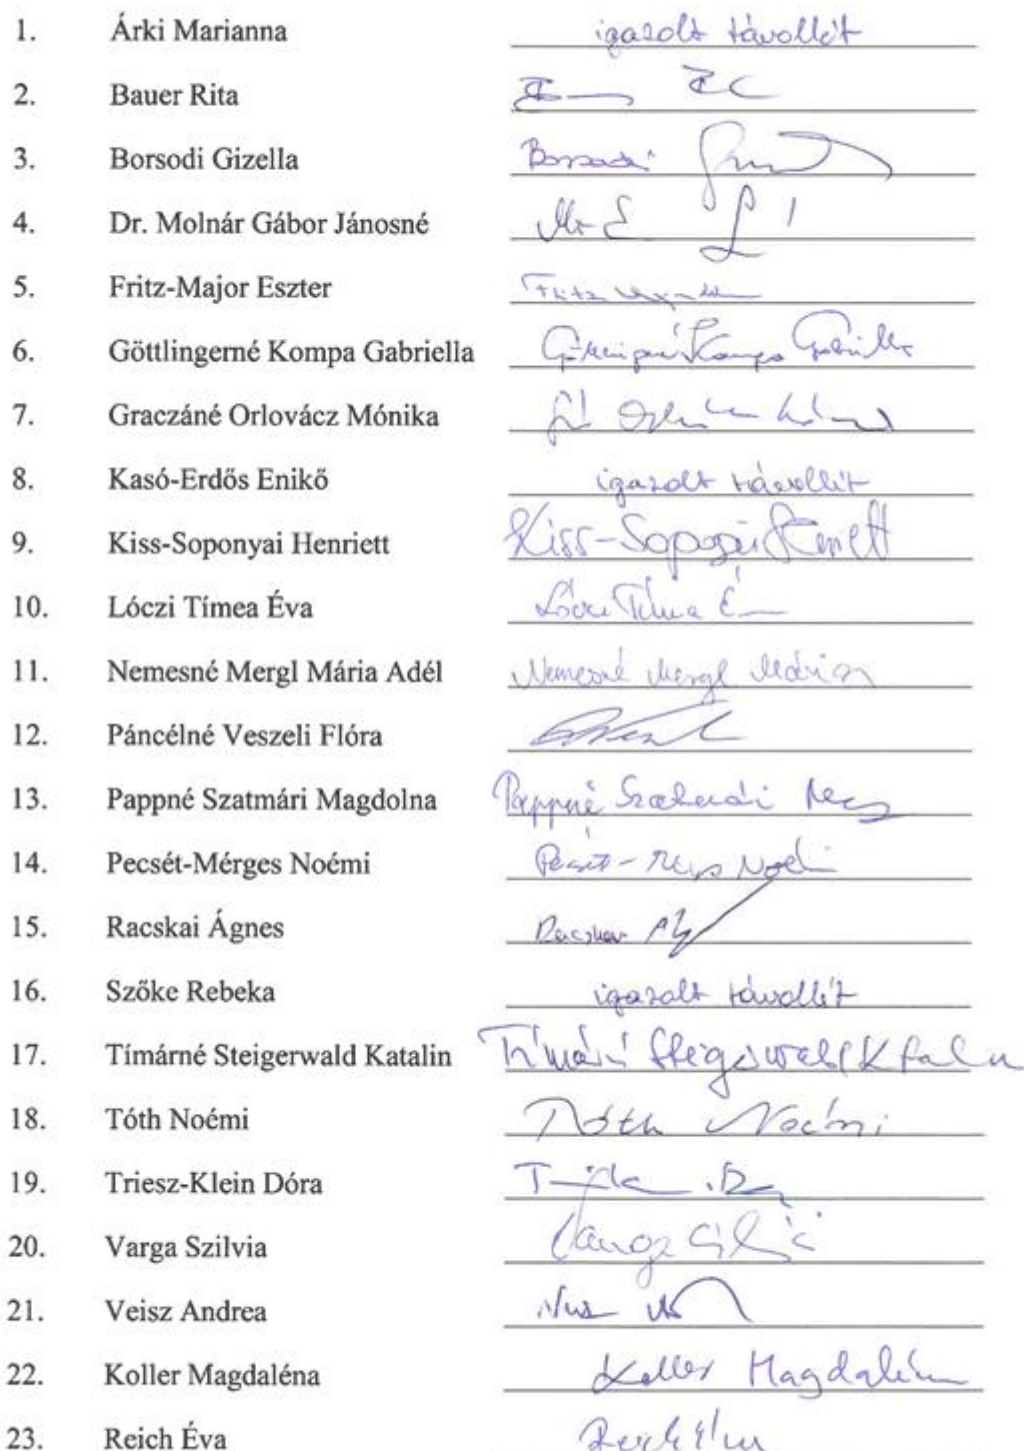 1. Árki Marianna igazolt távollét
2. Bauer Rita
3. Borsodi Gizella Borsodi
4. Dr. Molnár Gábor Jánosné
5. Fritz-Major Eszter Fritz
6. Göttlingerné Kompa Gabriella
7. Graczáné Orlovácz Mónika
8. Kasó-Erdős Enikő igazolt távollét
9. Kiss-Soponyai Henriett Kiss-Soponyai Henriett
10. Lóczi Tímea Éva
11. Nemesné Mergl Mária Adél Nemesné Mergl Mária
12. Páncélné Veszeli Flóra
13. Pappné Szatmári Magdolna Pappné
14. Pecsét-Mérges Noémi
15. Racskai Ágnes
16. Szőke Rebeka igazolt távollét
17. Tímárné Steigerwald Katalin
18. Tóth Noémi Tóth Noémi
19. Triesz-Klein Dóra
20. Varga Szilvia Varga Szilvia
21. Veisz Andrea
22. Koller Magdaléna Koller Magdaléna
23. Reich Éva Reich Éva